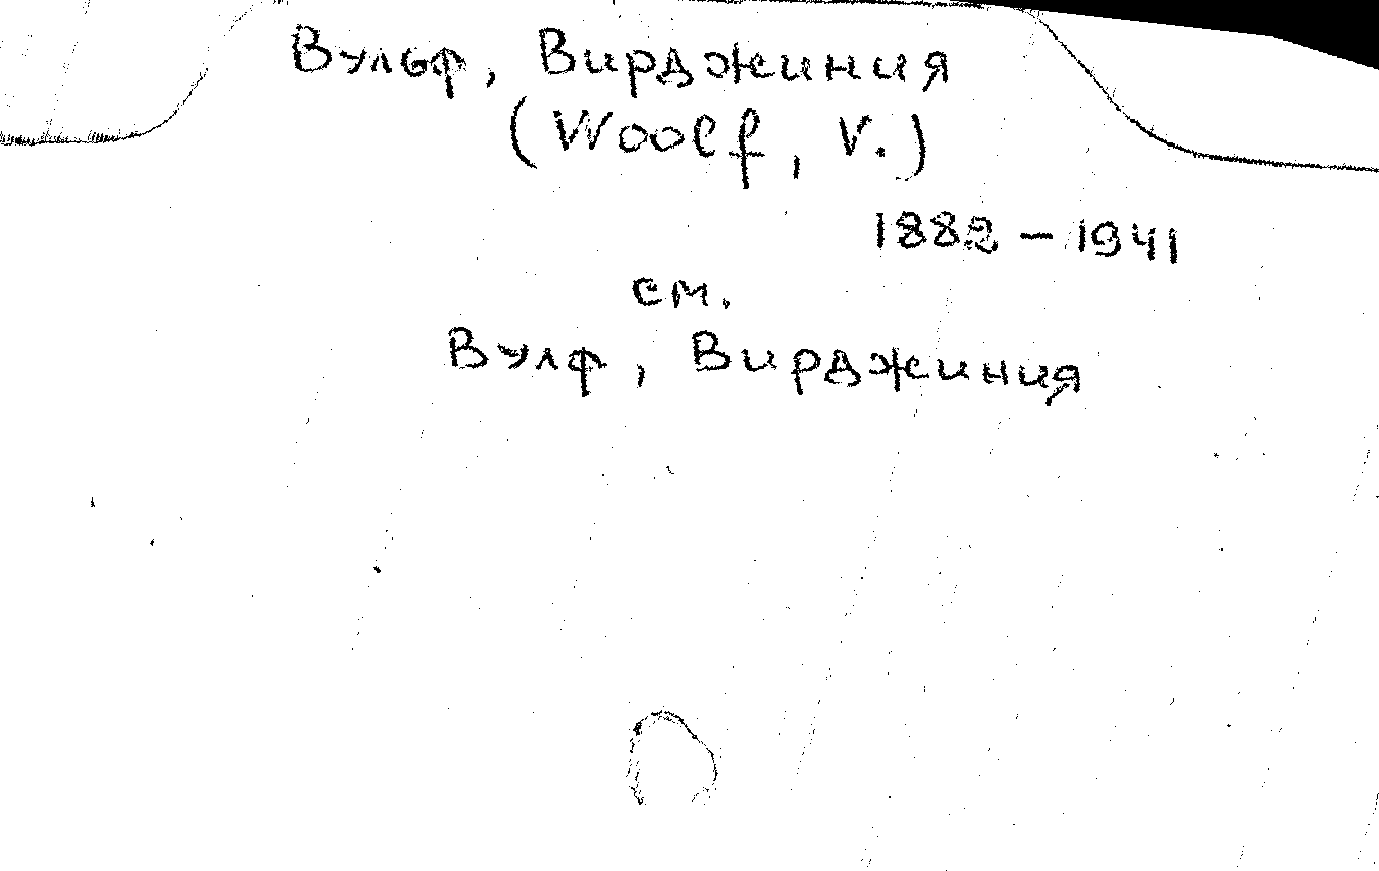 Вульф, Вирджиния
(Woolf, V.)
1882 – 1941
см.
Вулф, Вирджиния